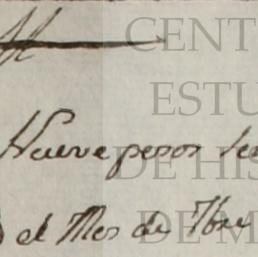 CENT
ESTU
Nueve pesos
DE HIS
el Mes de
DE M